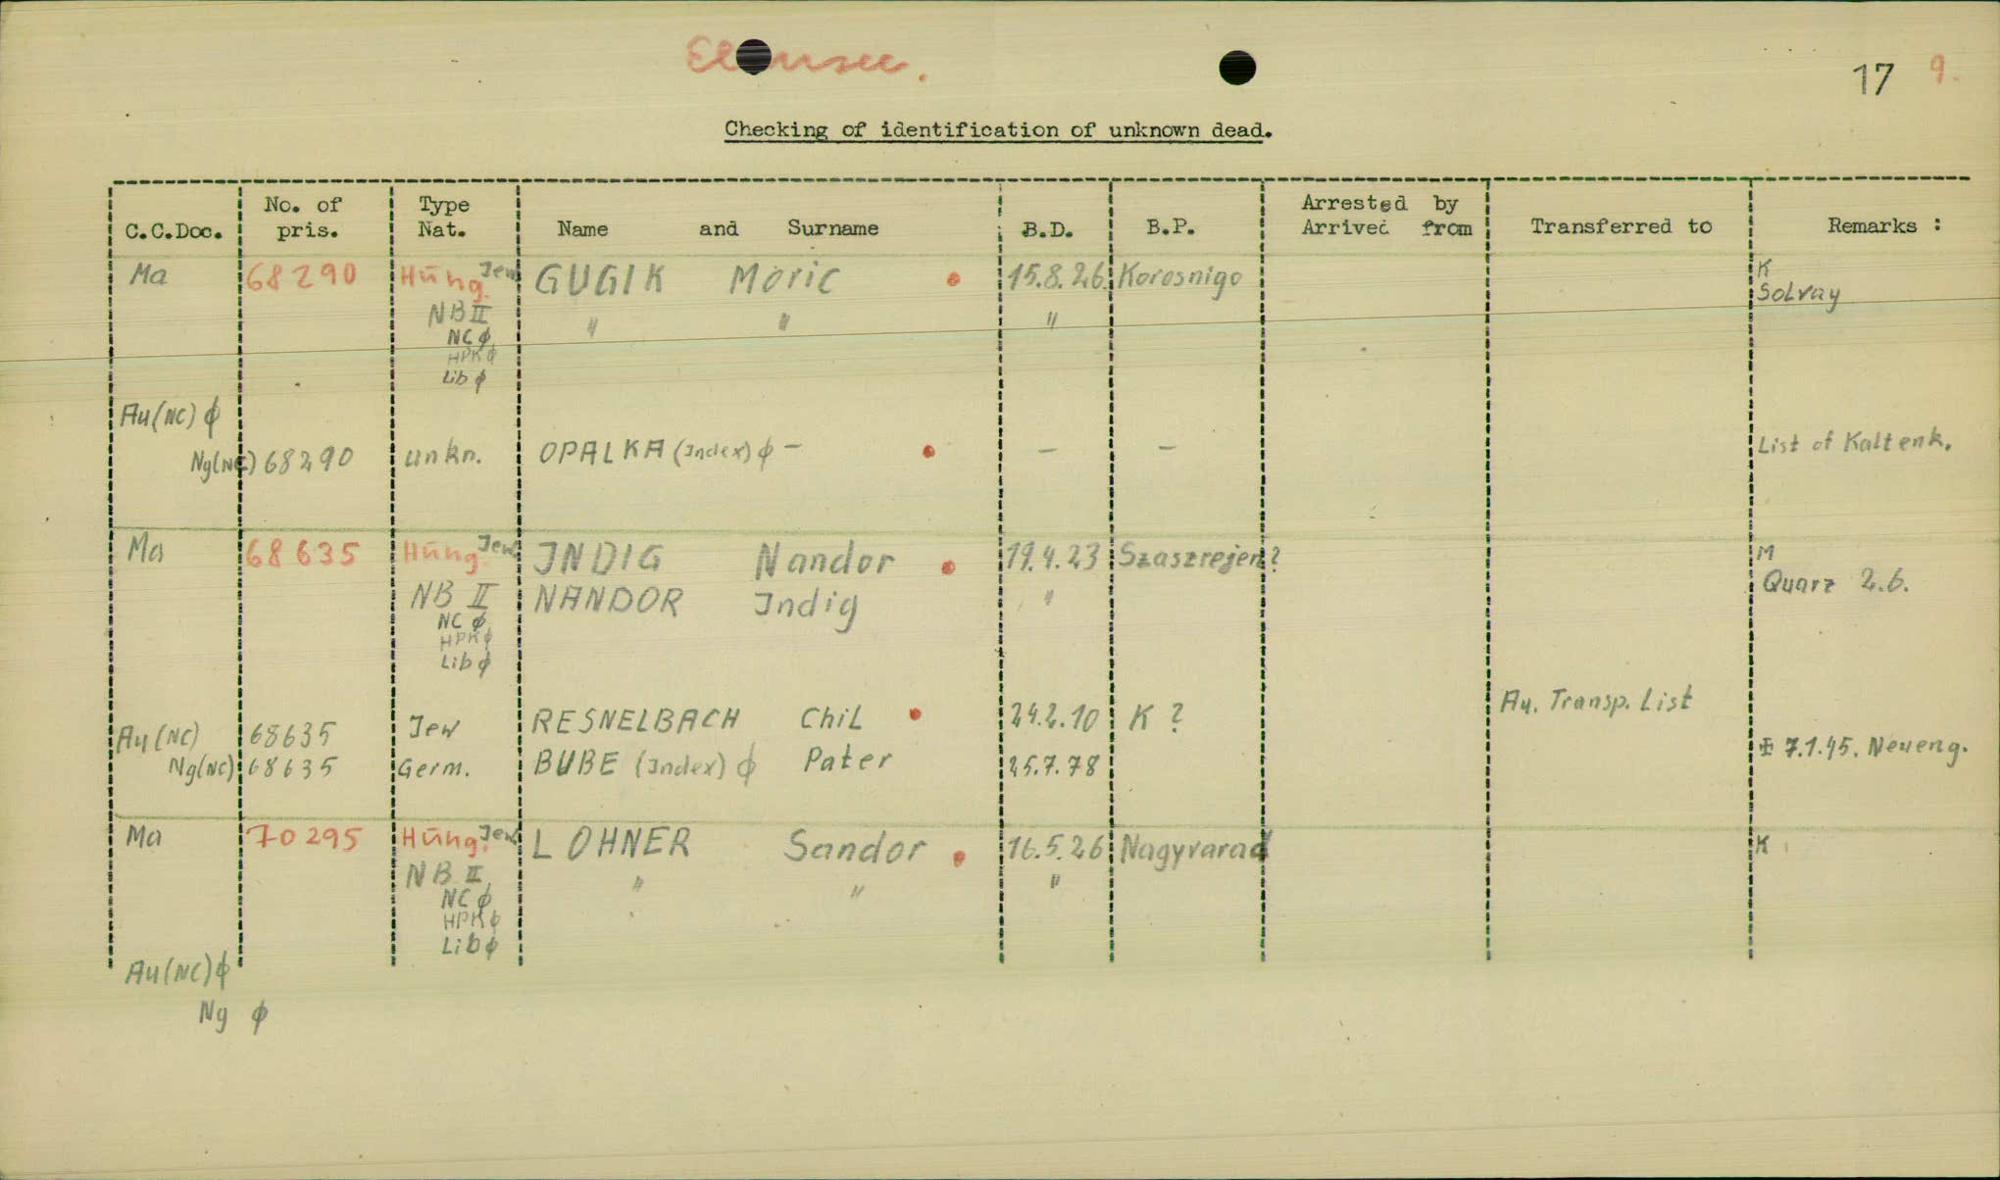 17 9.
Checking of identification of unknown dead.
C.C.Doc. No. of pris. Type Nat. Name and Surname B.D. B.P. Arrested by Arrived from Transferred to Remarks :
Ma 68290 Hung. Jew GUGIK Moric 15.8.26 Korosnigo K
Solvay
NB II " " "
NC φ
HPK φ
Lib φ
Au(NC) φ
Ng(NC) 68290 unkn. OPALKA (Index) φ - - - List of Kaltenk.
Ma 68635 Hung. Jew JNDIG Nandor 19.4.23 Szaszrejen? M
Quarz 2.6.
NB II NANDOR Jndig "
NC φ
HPK φ
Lib φ
Au. Transp. List
Au(NC) 68635 Jew RESNELBACH Chil 24.2.10 K ?
Ng(NC) 68635 Germ. BUBE (Index) φ Pater 25.7.78 7.1.45. Neueng.
Ma 70295 Hung. Jew LOHNER Sandor 16.5.26 Nagyvarad K
NB II " " "
NC φ
HPK φ
Lib φ
Au(NC) φ
Ng φ